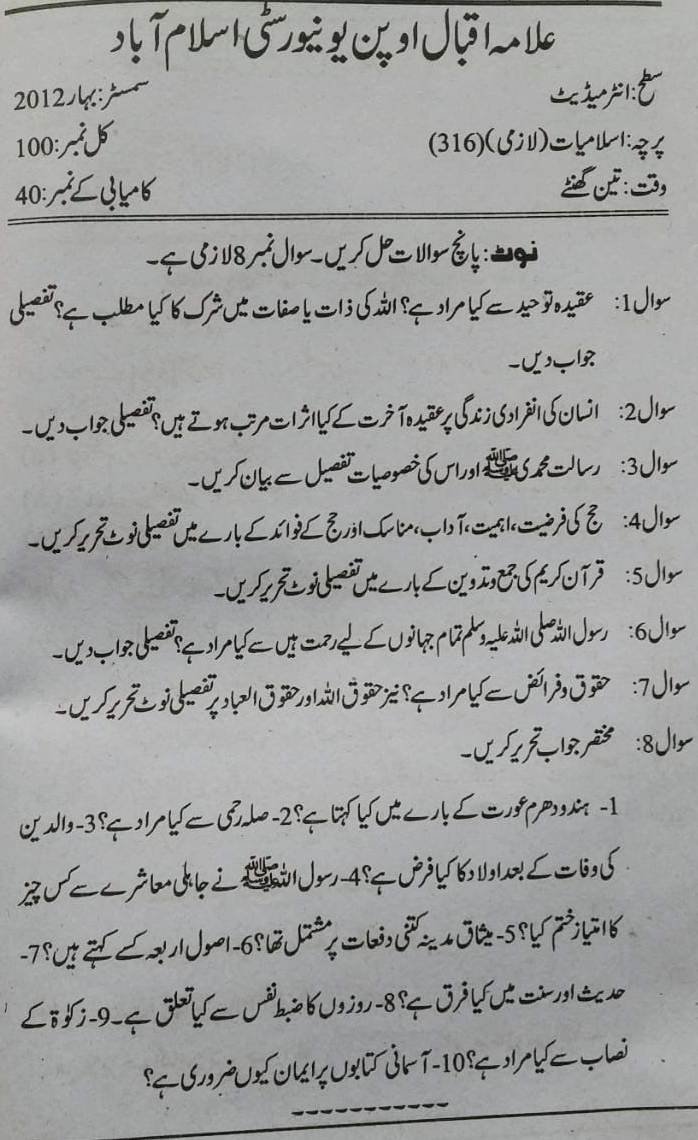 علامہ اقبال اوپن یونیورسٹی اسلام آباد
سطح: انٹرمیڈیٹ سمسٹر: بہار 2012
پرچہ: اسلامیات (لازمی) (316) کل نمبر: 100
وقت: تین گھنٹے کامیابی کے نمبر: 40
نوٹ: پانچ سوالات حل کریں۔ سوال نمبر 8 لازمی ہے۔
سوال 1: عقیدہ توحید سے کیا مراد ہے؟ اللہ کی ذات یا صفات میں شرک کا کیا مطلب ہے؟ تفصیلی
جواب دیں۔
سوال 2: انسان کی انفرادی زندگی پر عقیدہ آخرت کے کیا اثرات مرتب ہوتے ہیں؟ تفصیلی جواب دیں۔
سوال 3: رسالت محمدی ﷺ اور اس کی خصوصیات تفصیل سے بیان کریں۔
سوال 4: حج کی فرضیت، اہمیت، آداب، مناسک اور حج کے فوائد کے بارے میں تفصیلی نوٹ تحریر کریں۔
سوال 5: قرآن کریم کی جمع و تدوین کے بارے میں تفصیلی نوٹ تحریر کریں۔
سوال 6: رسول اللہ صلی اللہ علیہ وسلم تمام جہانوں کے لیے رحمت ہیں سے کیا مراد ہے؟ تفصیلی جواب دیں۔
سوال 7: حقوق و فرائض سے کیا مراد ہے؟ نیز حقوق اللہ اور حقوق العباد پر تفصیلی نوٹ تحریر کریں۔
سوال 8: مختصر جواب تحریر کریں۔
1- ہندو دھرم عورت کے بارے میں کیا کہتا ہے؟ 2- صلہ رحمی سے کیا مراد ہے؟ 3- والدین
کی وفات کے بعد اولاد کا کیا فرض ہے؟ 4- رسول اللہ ﷺ نے جاہلی معاشرے سے کس چیز
کا امتیاز ختم کیا؟ 5- میثاق مدینہ کتنی دفعات پر مشتمل تھا؟ 6- اصول اربعہ کسے کہتے ہیں؟ 7-
حدیث اور سنت میں کیا فرق ہے؟ 8- روزوں کا ضبط نفس سے کیا تعلق ہے۔ 9- زکوٰۃ کے
نصاب سے کیا مراد ہے؟ 10- آسمانی کتابوں پر ایمان کیوں ضروری ہے؟